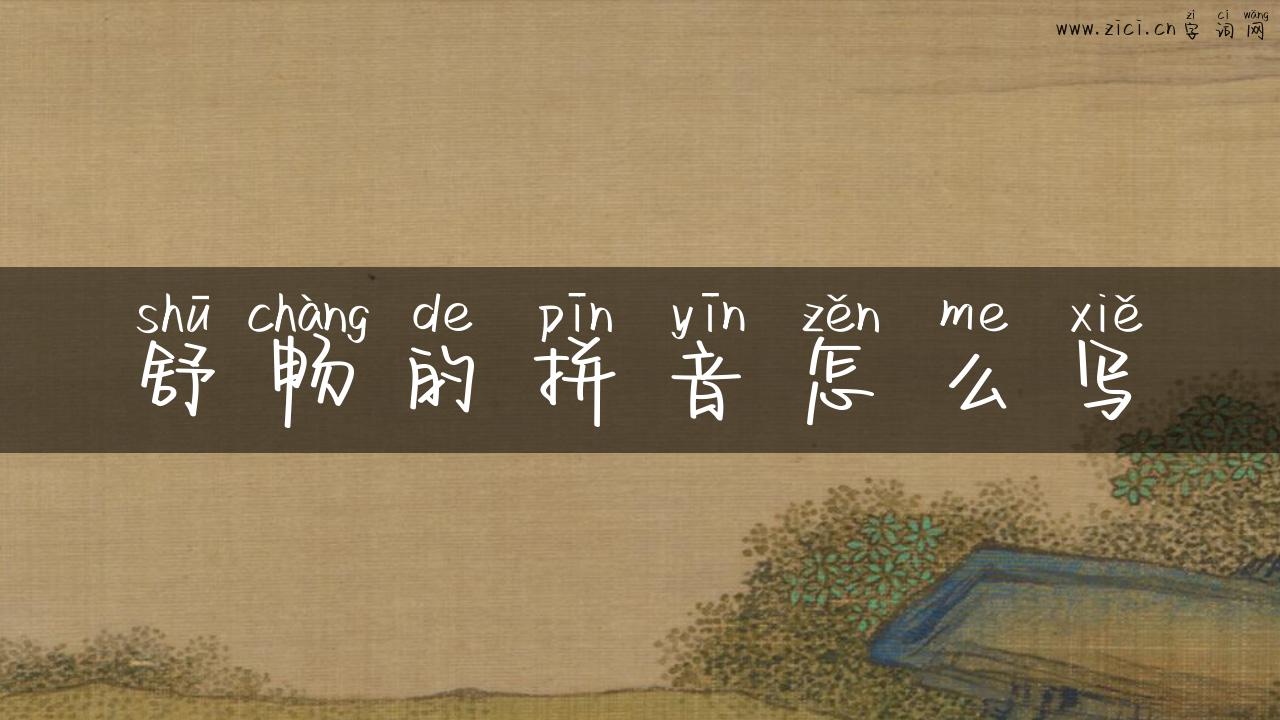 zì cí wǎng
www.zici.cn 字词网
shū chàng de pīn yīn zěn me xiě
舒畅的拼音怎么写